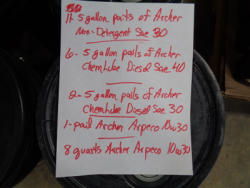 11-5 gallon pails of Archer
Non-Detergent Sae 30
6-5 gallon pails of Archer
Chemlube Diesel Sae 40
2-5 gallon pails of Archer
Chemlube Diesel Sae 30
1-pail Archer Arpeco 10w30
8 quarts Archer Arpeco 10w30